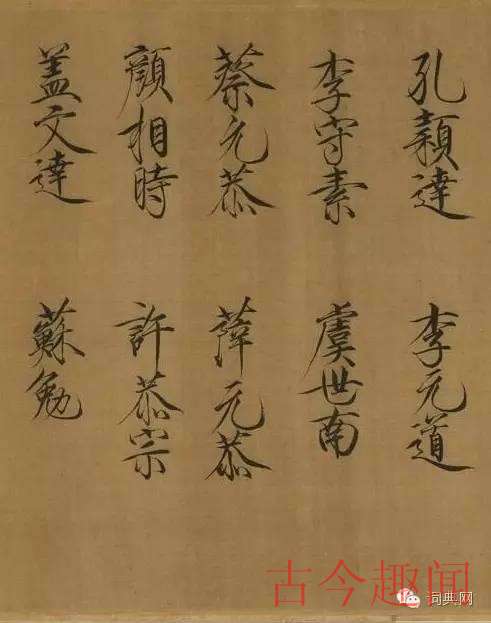 孔颖達
李元道
李守素
虞世南
蔡元恭
薛元恭
顏相時
許恭宗
蓋文達
蘇勉
古今趣闻
词典网